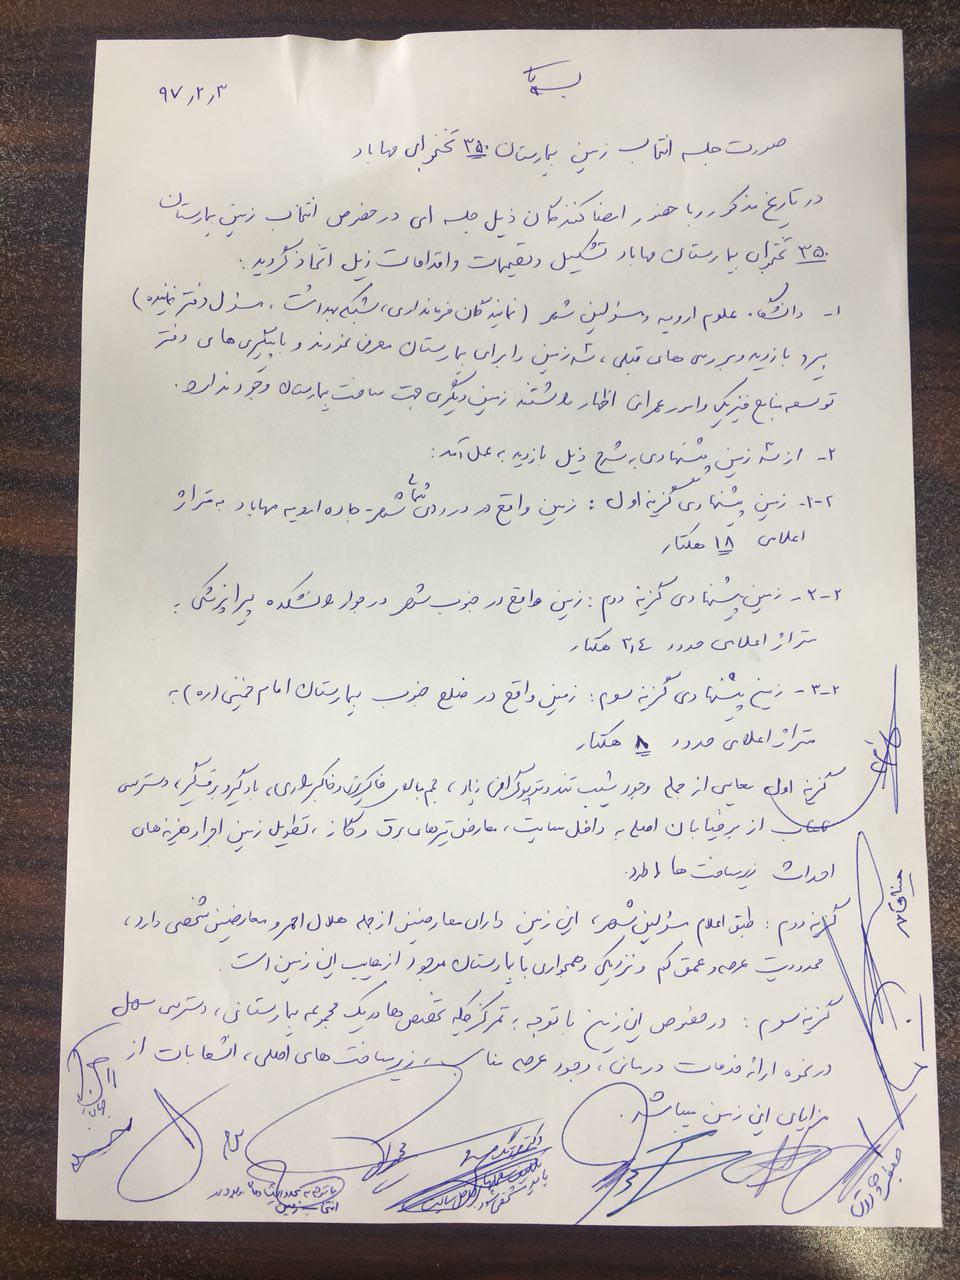 ۹۷٫۲٫۳
صورت جلسه انتخاب زمین بیمارستان ۳۵۰ تختخوابی مهاباد
در تاریخ مذکور با حضور امضا کنندگان ذیل جلسه ای در خصوص انتخاب زمین بیمارستان
۳۵۰ تختخوابی بیمارستان مهاباد تشکیل و تصمیمات و اقدامات ذیل اتخاذ گردید:
۱- دانشگاه علوم ارومیه و مسئولین شهر (نمایندگان فرمانداری، شبکه بهداشت، مسئول دفتر نماینده)
پیرو بازدید و بررسی های قبلی، سه زمین را برای بیمارستان معرفی نمودند و با پیگیری های دفتر
توسعه منابع فیزیکی و امور عمرانی اظهار داشتند زمین دیگری جهت ساخت بیمارستان وجود ندارد.
۲- از سه زمین پیشنهادی به شرح ذیل بازدید به عمل آمد:
۲-۱- زمین پیشنهادی گزینه اول: زمین واقع در ورودی شمالی شهر جاده ارومیه مهاباد به متراژ
اعلامی ۱۸ هکتار
۲-۲- زمین پیشنهادی گزینه دوم: زمین واقع در جنوب شهر در جوار دانشکده پیراپزشکی به
متراژ اعلامی حدود ۳٫۴ هکتار
۲-۳- زمین پیشنهادی گزینه سوم: زمین واقع در ضلع جنوب بیمارستان امام خمینی (ره) به
متراژ اعلامی حدود ۸ هکتار
گزینه اول معایبی از جمله وجود شیب تند و توپوگرافی زیاد، حجم بالای خاکریزی و خاکبرداری، بادگیر و برفگیر، دسترسی
از بر خیابان اصلی به داخل سایت، معارض تیرهای برق و گاز، تطویل زمین اجرا و هزینه های
احداث زیرساخت ها را دارد.
گزینه دوم: طبق اعلام مسئولین شهر، این زمین دارای معارضینی از جمله هلال احمر و معارضین شخصی دارد،
محدودیت عرصه و عمق کم و نزدیکی و همجواری با بیمارستان موجود از معایب این زمین است.
گزینه سوم: در خصوص این زمین با توجه به تمرکز کلیه تخصص ها در یک مجموعه بیمارستانی، دسترسی سهل
در نحوه ارائه خدمات درمانی، وجود عرصه مناسب، زیرساخت های اصلی، انشعابات از
مزایای این زمین میباشد.